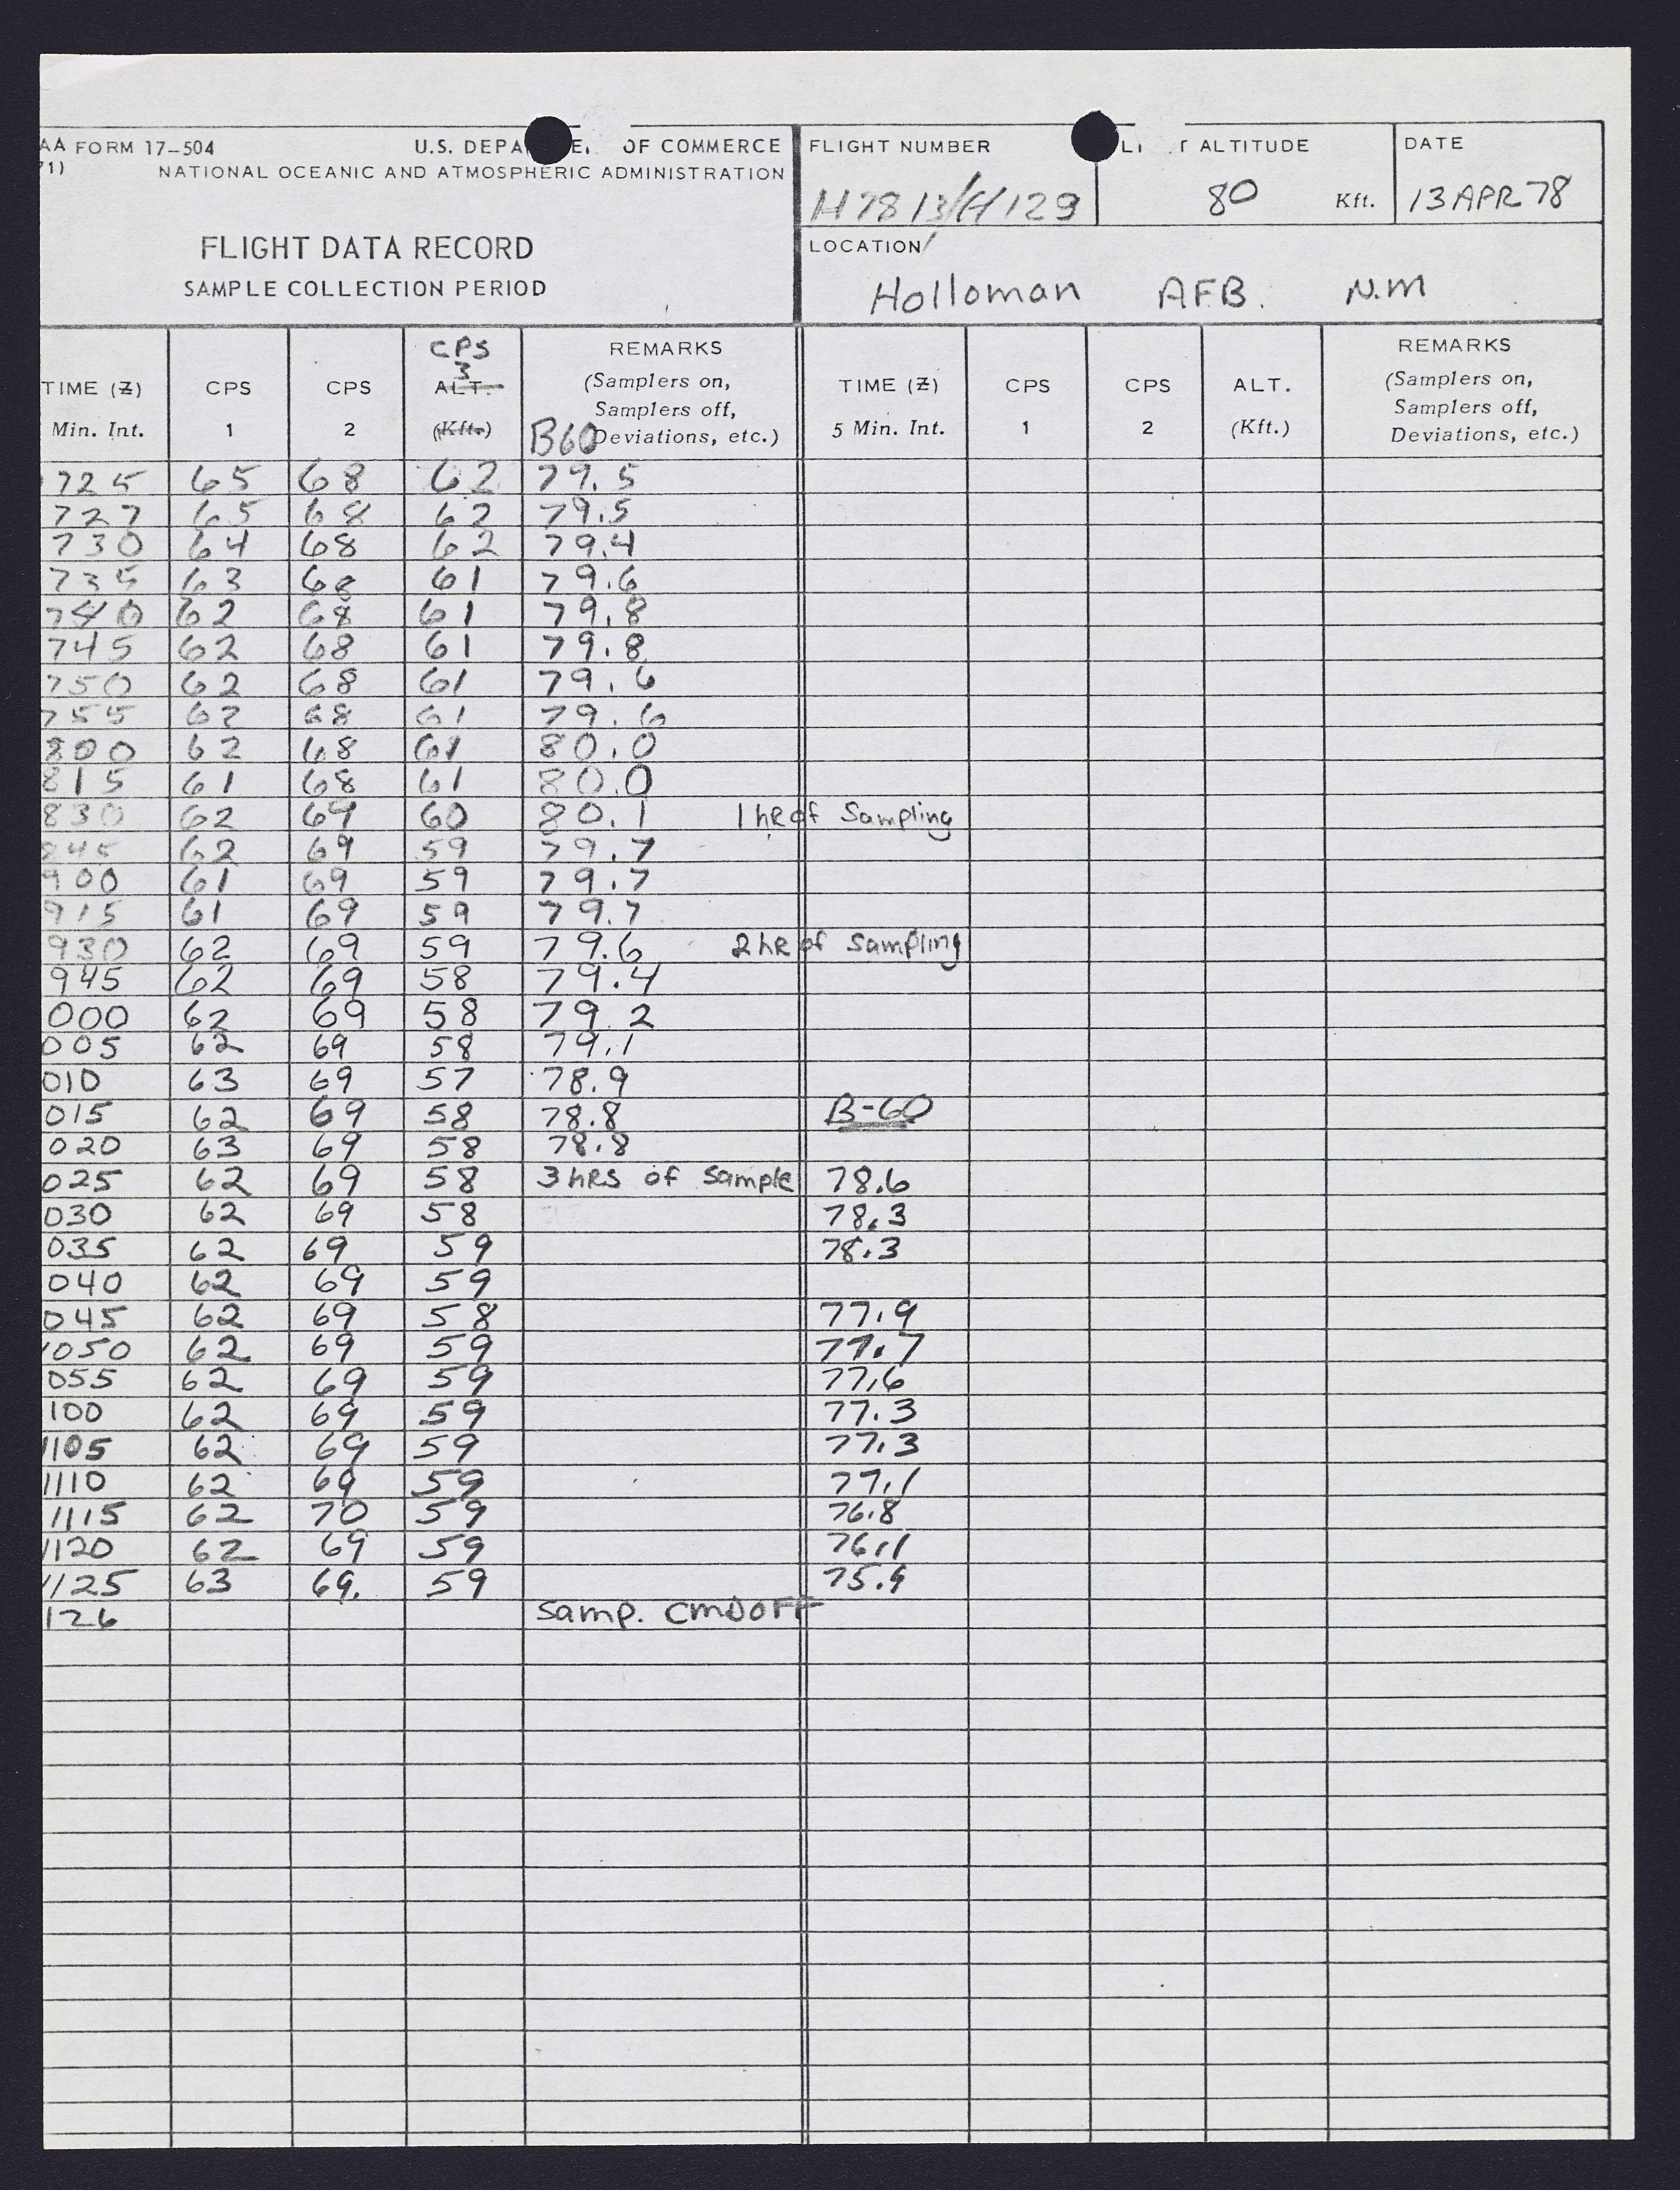 AA FORM 17-504 U.S. DEPA E. OF COMMERCE
71) NATIONAL OCEANIC AND ATMOSPHERIC ADMINISTRATION
FLIGHT DATA RECORD
SAMPLE COLLECTION PERIOD
FLIGHT NUMBER
H7813/H129
ALTITUDE
80 Kft.
DATE
13 APR 78
LOCATION
Holloman AFB. N.M
TIME (Z) Min. Int. CPS 1 CPS 2 CPS 3 ALT. (Kft.) B60 REMARKS (Samplers on, Samplers off, Deviations, etc.) TIME (Z) 5 Min. Int. CPS 1 CPS 2 ALT. (Kft.) REMARKS (Samplers on, Samplers off, Deviations, etc.)
725 65 68 62 79.5
727 65 68 62 79.5
730 64 68 62 79.4
735 63 68 61 79.6
740 62 68 61 79.8
745 62 68 61 79.8
750 62 68 61 79.6
755 62 68 61 79.6
800 62 68 61 80.0
815 61 68 61 80.0
830 62 69 60 80.1 1 hR of Sampling
845 62 69 59 79.7
900 61 69 59 79.7
915 61 69 59 79.7
930 62 69 59 79.6 2 hR of Sampling
945 62 69 58 79.4
000 62 69 58 79.2
005 62 69 58 79.1
010 63 69 57 78.9
015 62 69 58 78.8 B-60
020 63 69 58 78.8
025 62 69 58 3 hRs of Sample 78.6
030 62 69 58 78.3
035 62 69 59 78.3
040 62 69 59
045 62 69 58 77.9
1050 62 69 59 77.7
055 62 69 59 77.6
100 62 69 59 77.3
1105 62 69 59 77.3
1110 62 69 59 77.1
1115 62 70 59 76.8
1120 62 69 59 76.1
1125 63 69. 59 75.9
126 Samp. CMD OFF